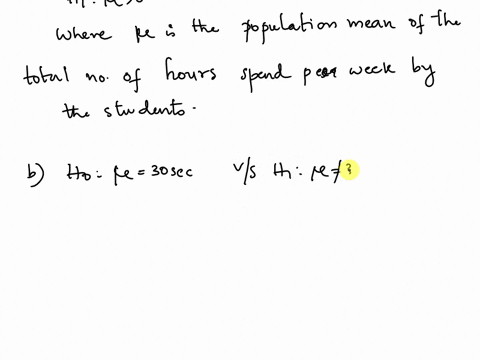 where μ is the population mean of the
total no. of hours spend per week by
the students.
b) H0: μ = 30 sec v/s H1: μ ≠ 3